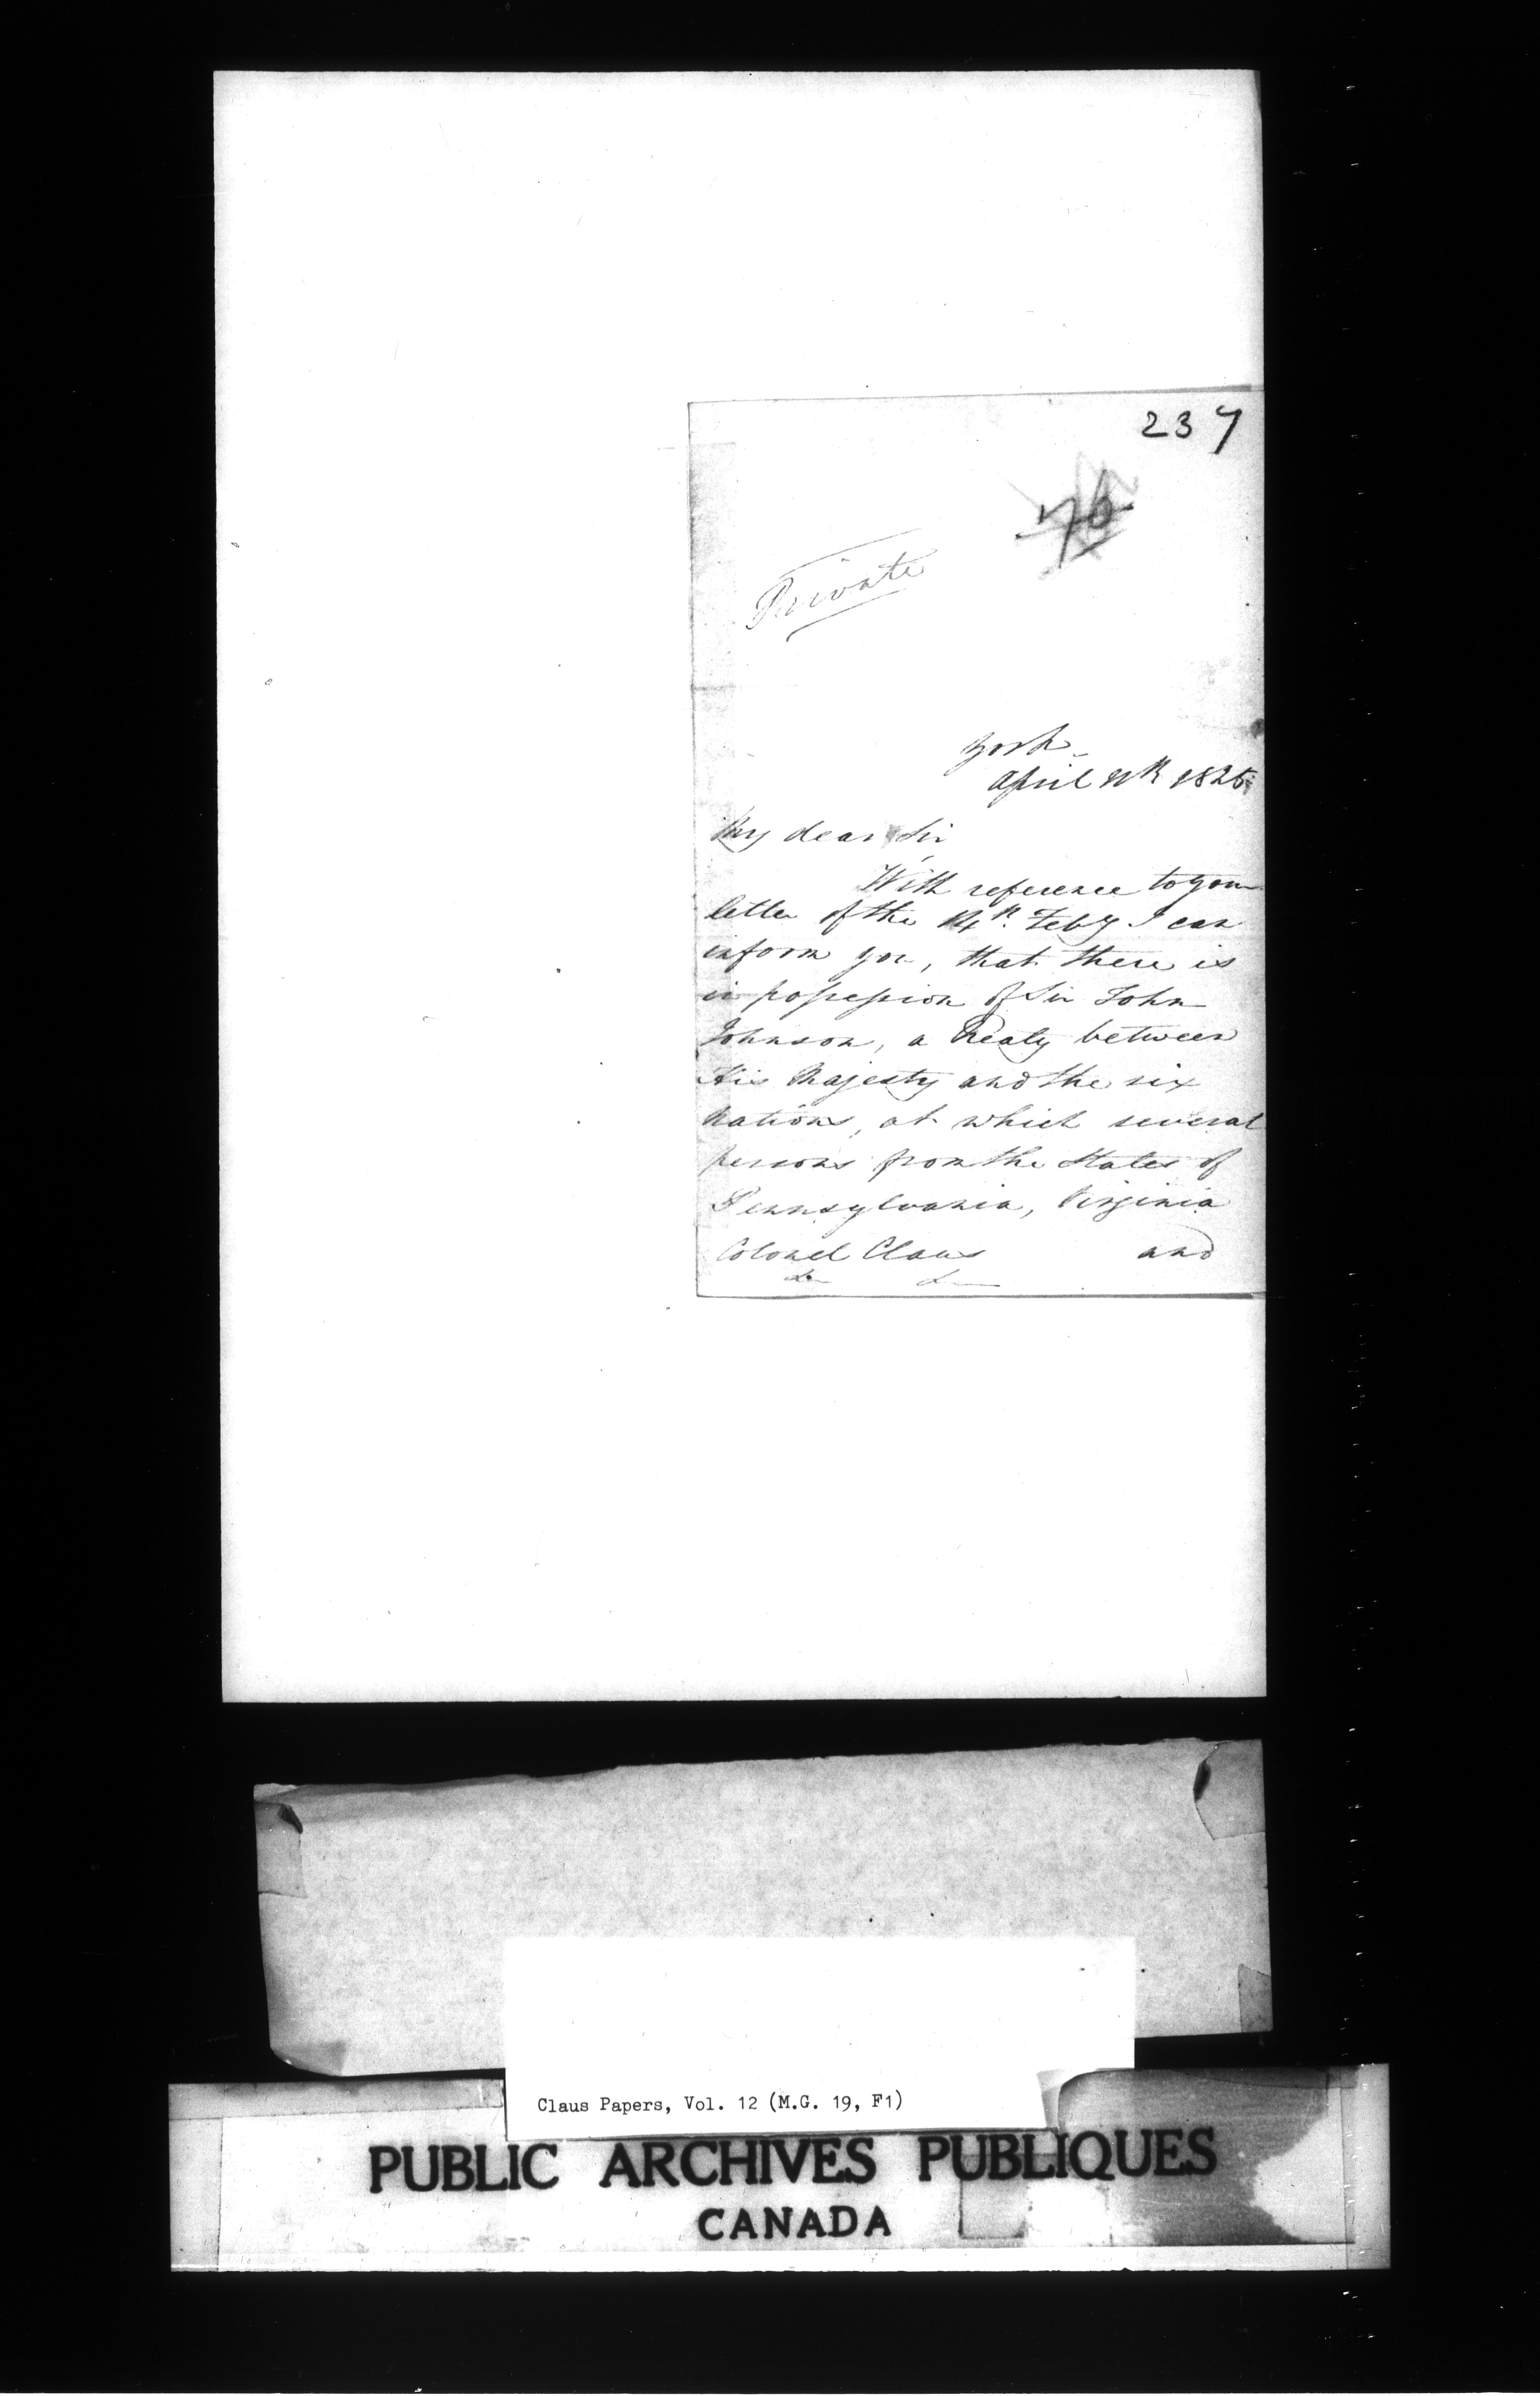 237
76
Private
York
April 1825
My dear Sir
With reference to your
letter of the 14th. Feby I can
inform you, that there is
in possession of Sir John
Johnson, a Treaty between
His Majesty and the six
Nations, at which several
persons from the States of
Pennsylvania, Virginia
Colonel Claus and
Claus Papers, Vol. 12 (M.G. 19, F1)
PUBLIC ARCHIVES PUBLIQUES
CANADA